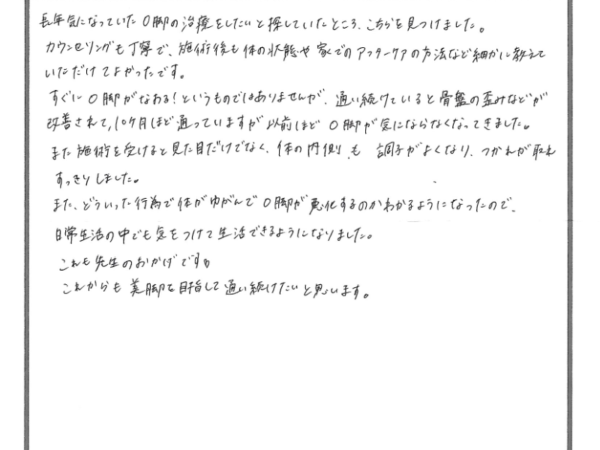 長年気になっていたO脚の治療をしたいと探していたところ、こちらを見つけました。
カウンセリングも丁寧で、施術後も体の状態や家でのアフターケアの方法など細かに教えて
いただけてよかったです。
すぐにO脚がなおる!というものではありませんが、通い続けていると骨盤の歪みなどが
改善されて、10ヶ月ほど通っていますが以前ほどO脚が気にならなくなってきました。
また施術を受けると見た目だけでなく、体の内側も調子がよくなり、つかれが取れ
すっきりしました。
また、どういった行為で体がゆがんでO脚が悪化するのかわかるようになったので、
日常生活の中でも気をつけて生活できるようになりました。
これも先生のおかげです。
これからも美脚を目指して通い続けたいと思います。